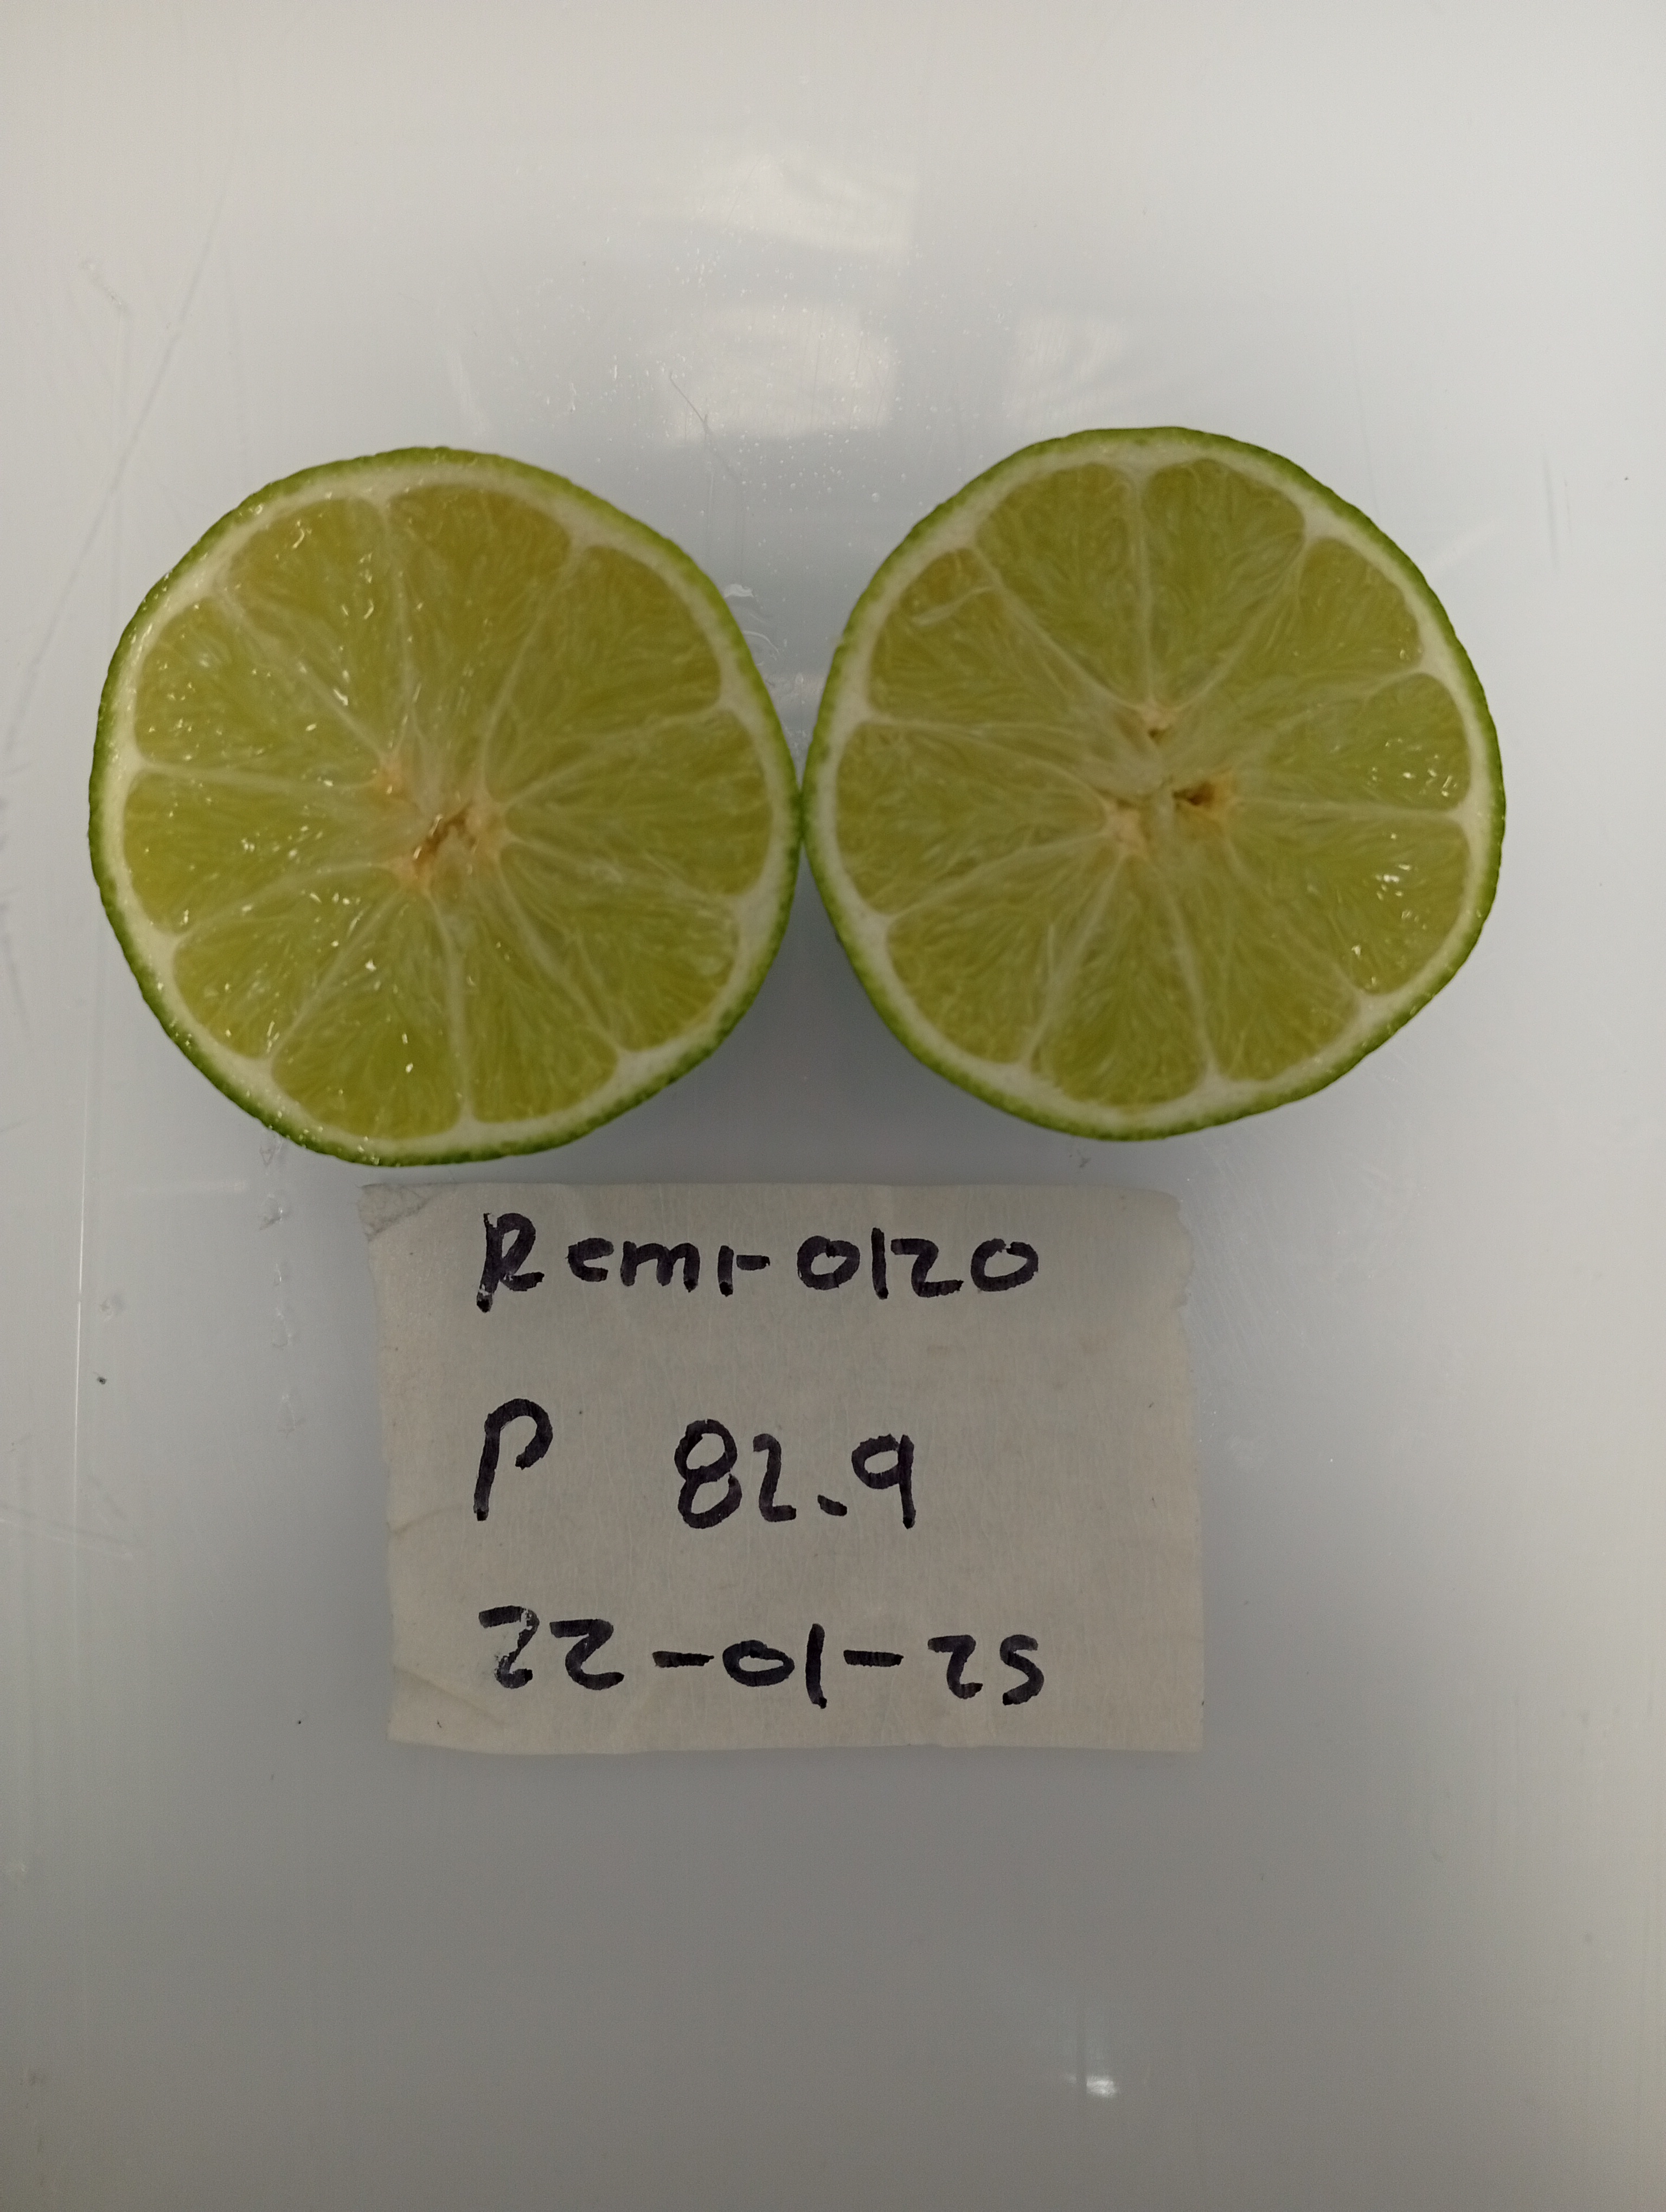 Remi-0120
P 82.9
22-01-25